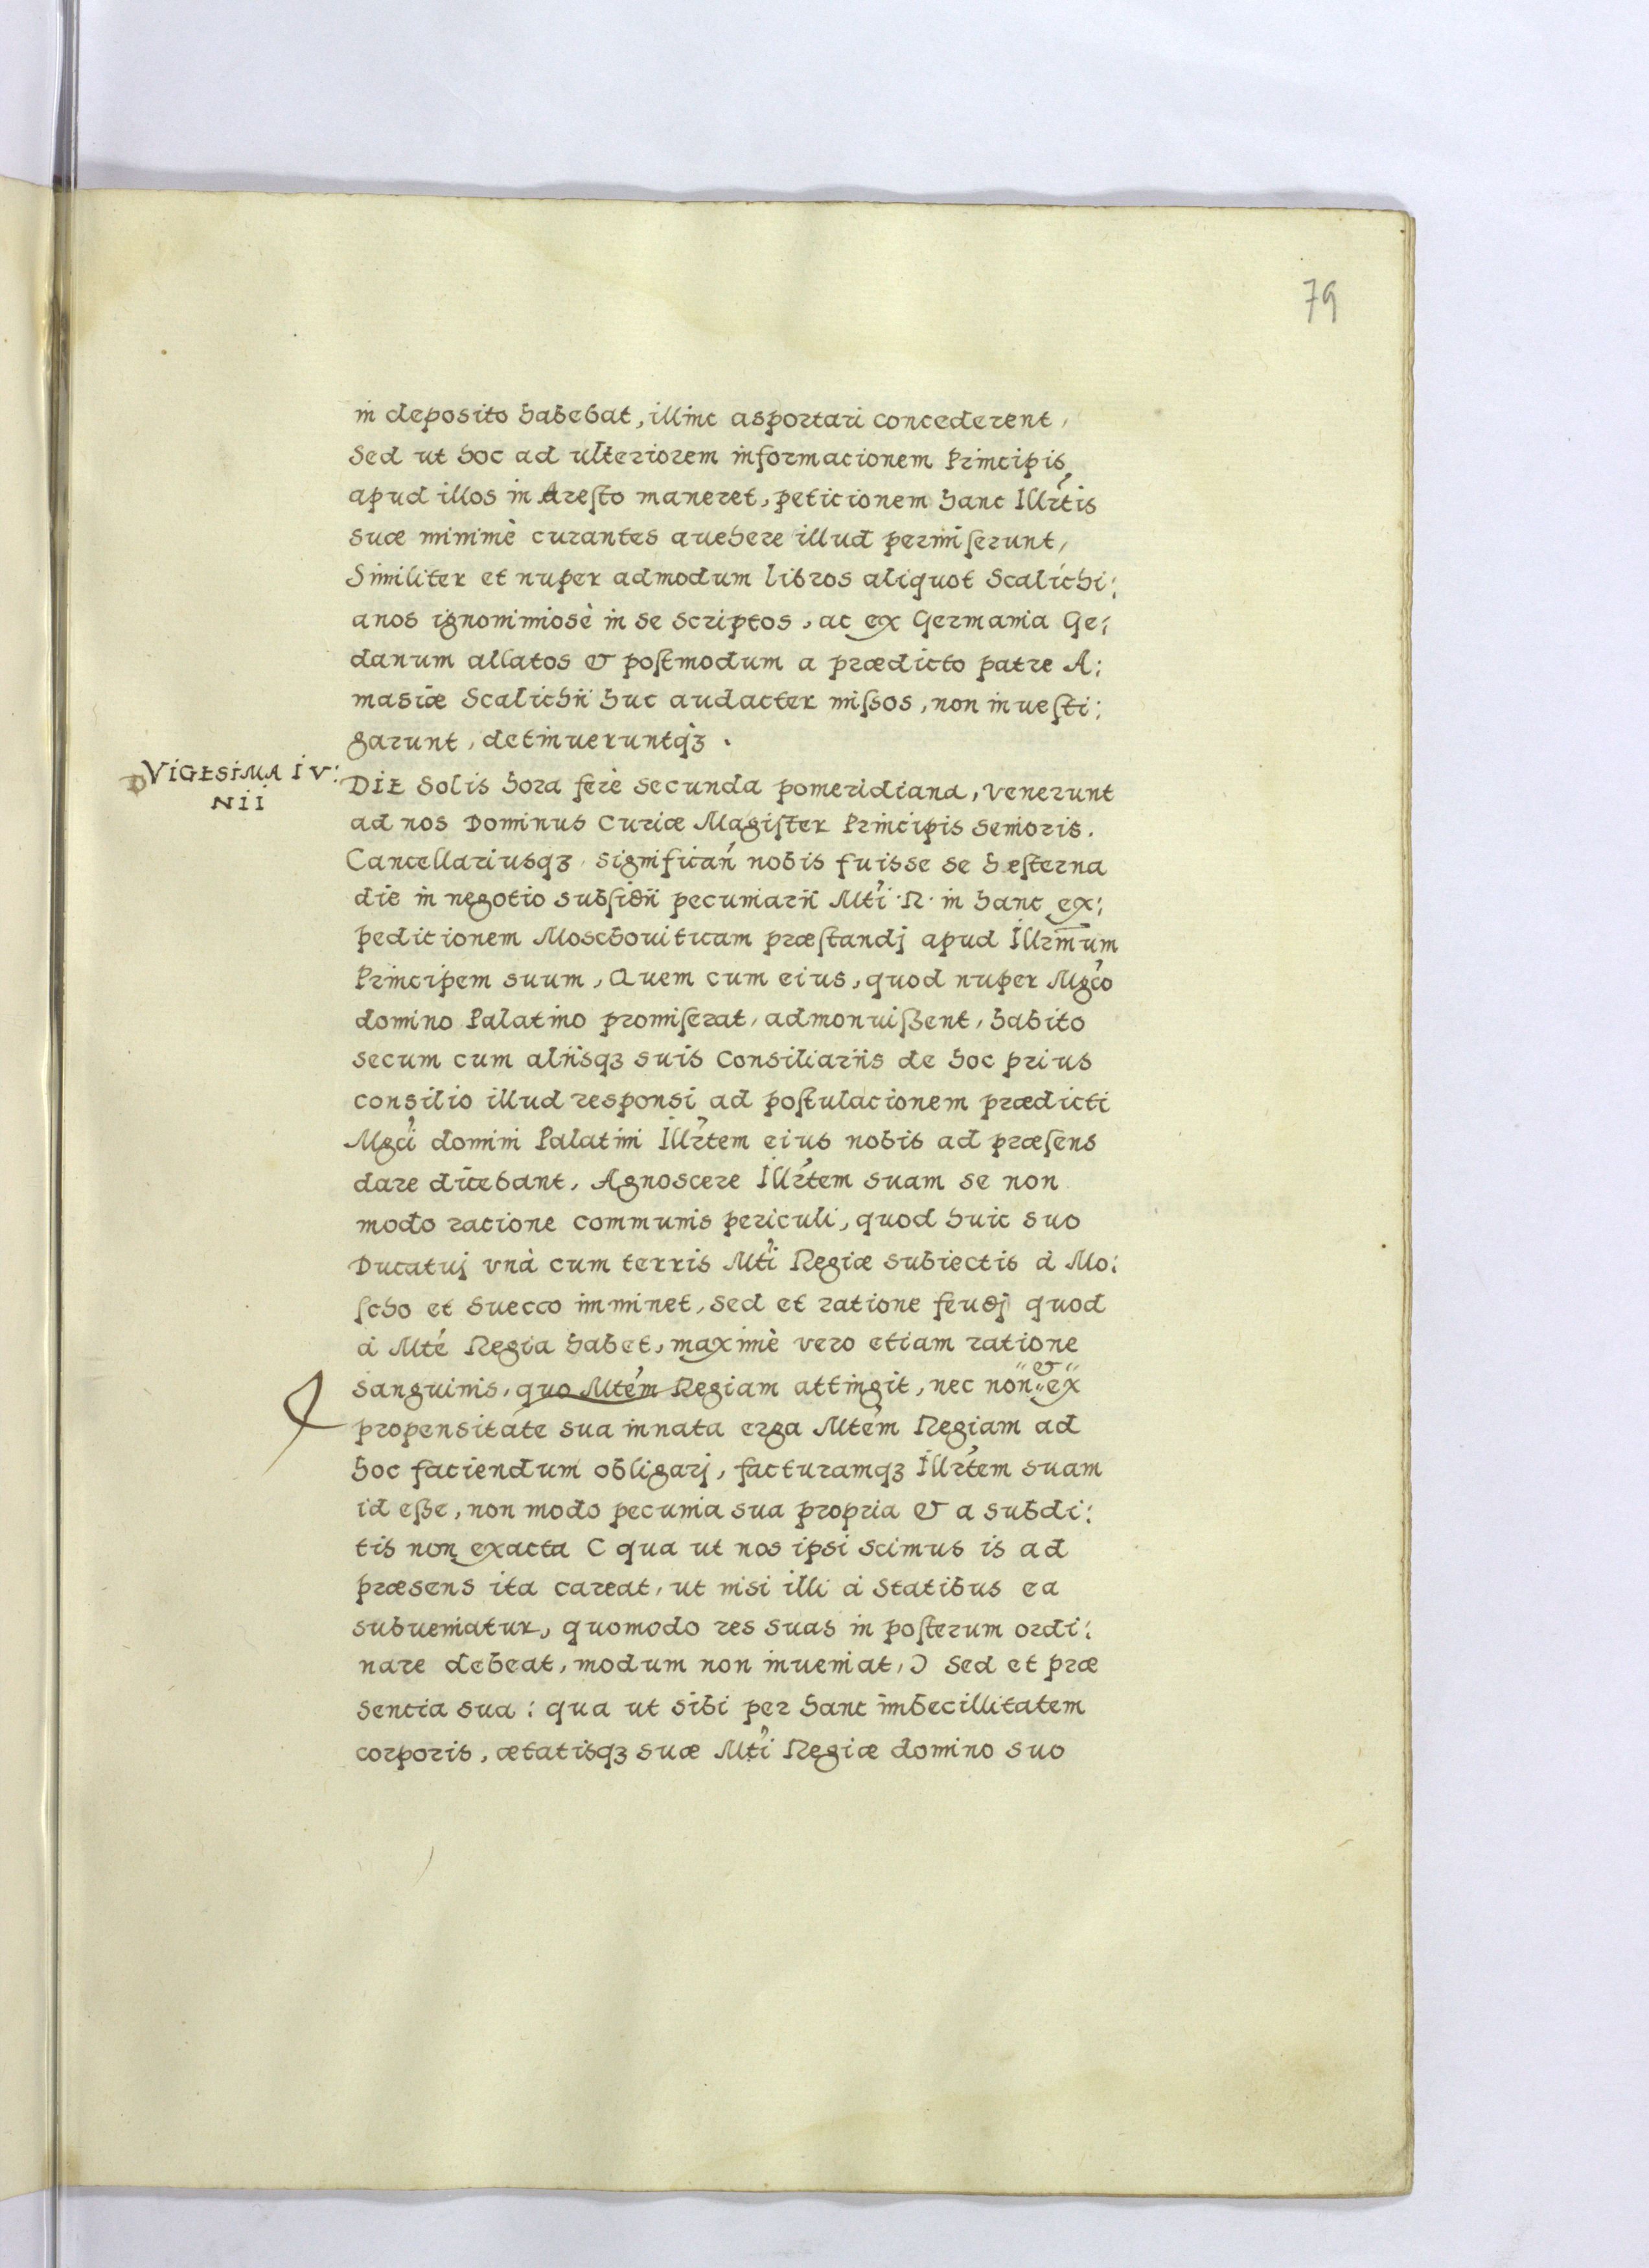 79
in deposito habebat, illinc asportari concederent,
Sed ut hoc ad ulteriorem informacionem Principis
apud illos in Aresto maneret, peticionem hanc Illrtis
suæ minimè curantes auehere illud permiserunt,
Similiter et nuper admodum libros aliquot Scalichi:
anos ignominiosè in se scriptos, ac ex Germania Ge:
danum allatos & postmodum a prædicto patre A:
masiæ Scalichii huc audacter missos, non inuesti:
garunt, detinueruntqꝫ.
VIGESIMA IV:
NII
DIE Solis hora ferè secunda pomeridiana, venerunt
ad nos Dominus Curiæ Magister Principis senioris.
Cancellariusqꝫ significan nobis fuisse se hesterna
die in negotio subsidii pecuniarii Mti R. in hanc ex:
pedicionem Moschouiticam præstandj apud Illrmum
Principem suum, Quem cum eius, quod nuper Mgco
domino Palatino promiserat, admonuißent, habito
secum cum aliisqꝫ suis Consiliariis de hoc prius
consilio illud responsi ad postulacionem prædicti
Mgci domini Palatini Illrtem eius nobis ad præsens
dare dicebant, Agnoscere Illrtem suam se non
modo racione communis periculi, quod huic suo
Ducatuj vnà cum terris Mti Regiæ subiectis à Mo:
scho et Suecco imminet, sed et ratione feudj quod
à Mte Regia habet, maximè vero etiam ratione
sanguinis, quo Mtem Regiam attingit, nec non & ex
propensitate sua innata erga Mtem Regiam ad
hoc faciendum obligarj, facturamqꝫ Illrtem suam
id eße, non modo pecunia sua propria & a subdi:
tis non exacta ( qua ut nos ipsi scimus is ad
præsens ita careat, ut nisi illi à Statibus ea
subueniatur, quomodo res suas in posterum ordi:
nare debeat, modum non inueniat, ) Sed et præ
sencia sua: qua ut sibi per hanc imbecillitatem
corporis, ætatisqꝫ suæ Mti Regiæ domino suo